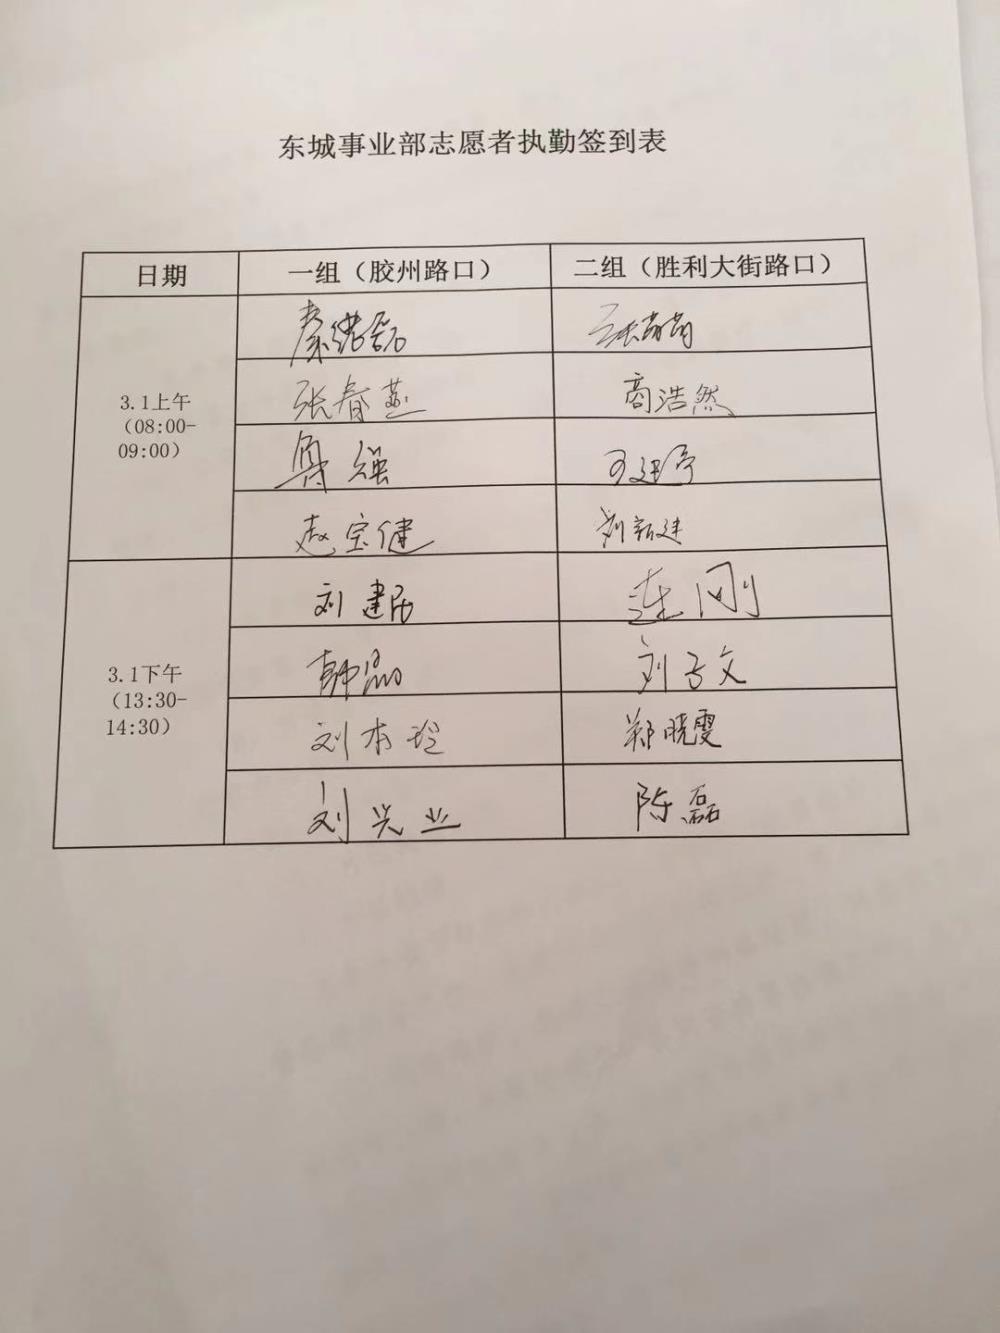 东城事业部志愿者执勤签到表
日期 一组（胶州路口） 二组（胜利大街路口）
秦绪磊 张萌萌
3.1上午
（08:00-
09:00）
张春燕 商浩然
强
赵宝健 刘新建
刘建民 连刚
3.1下午
（13:30-
14:30）
韩磊 刘子文
刘本玲 郑晓雯
刘兴业 陈磊